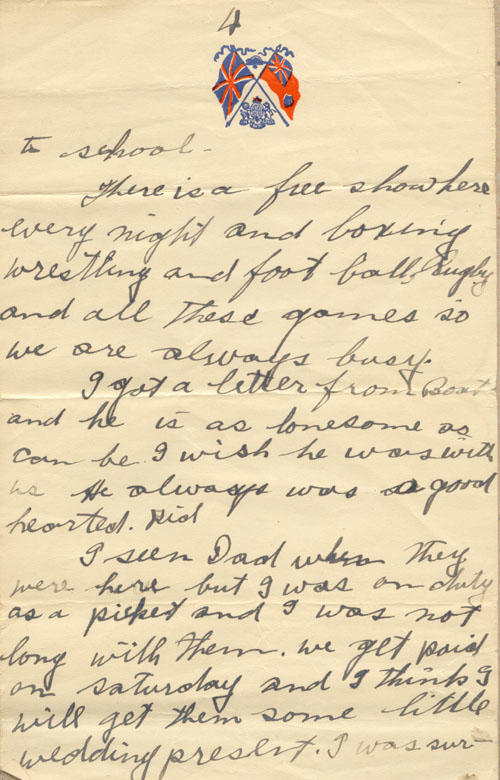 4
to school -
There is a free show here
every night and boxing
wrestling and foot ball, Rugby
and all these games so
we are always busy.
I got a letter from
and he is as lonesome as
can be I wish he was with
us He always was a good
hearted. Kid
I seen Dad when they
were here but I was on duty
as a picket and I was not
long with them. we get paid
on saturday and I thinks I
will get them some little
wedding present. I was sur-